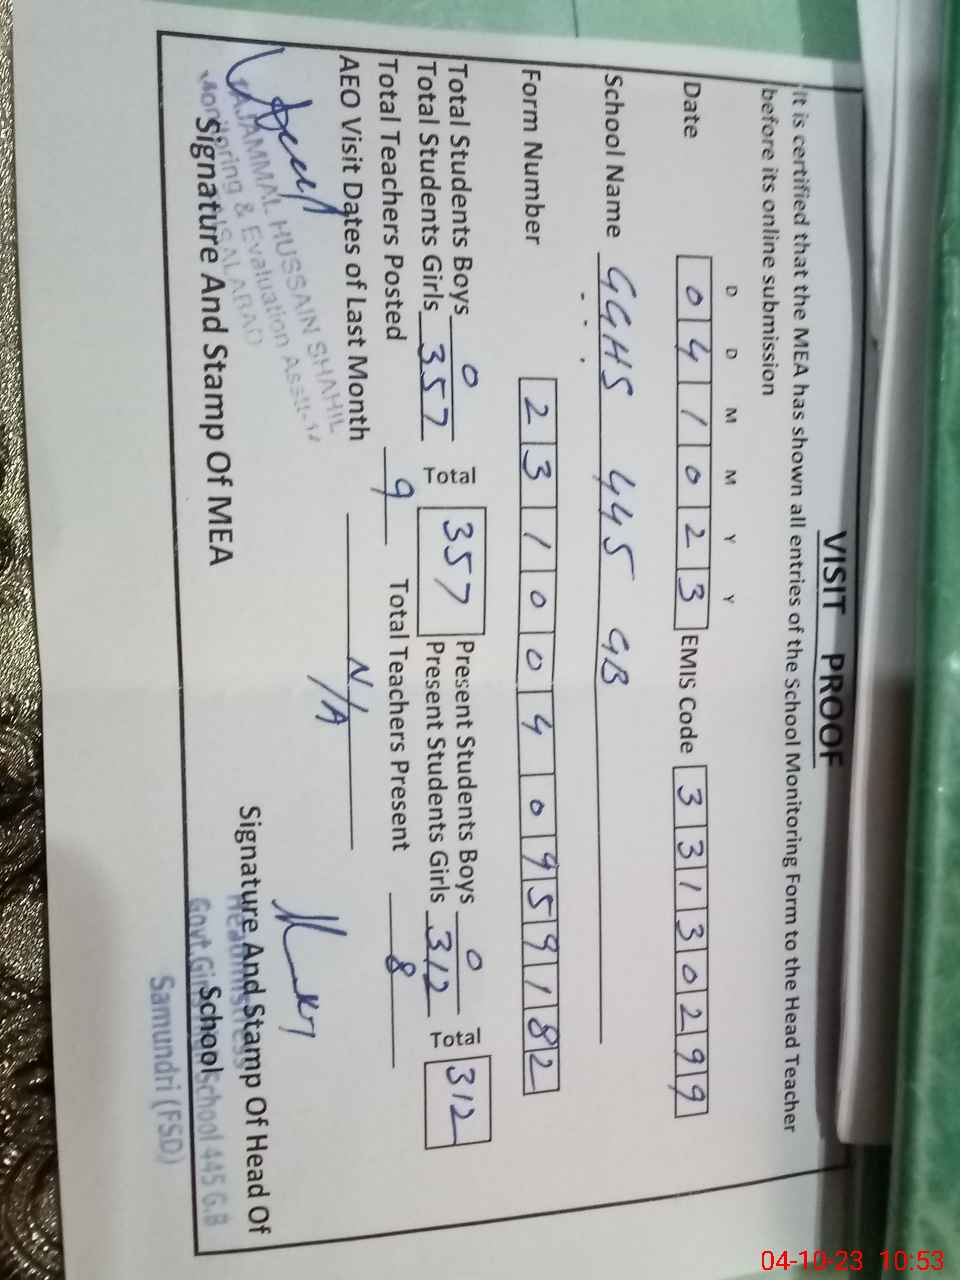 VISIT PROOF
It is certified that the MEA has shown all entries of the School Monitoring Form to the Head Teacher
before its online submission
D D M M Y Y
Date 0 4 1 0 2 3 EMIS Code 3 3 1 3 0 2 9 9
School Name GGHS 445 GB
Form Number 2 3 1 0 0 4 0 9 5 9 1 8 2
Total Students Boys 0 Total 357 Present Students Boys 0 Total 312
Total Students Girls 357 Present Students Girls 312
Total Teachers Posted 9 Total Teachers Present 8
AEO Visit Dates of Last Month N/A
HUSSAIN SHAHIL
Monitoring & Evaluation Asstt-
Signature And Stamp Of MEA
Signature And Stamp Of Head Of
School
Headmistress
Govt. Girls School 445 G.B
Samundri (FSD)
04-10-23 10:53